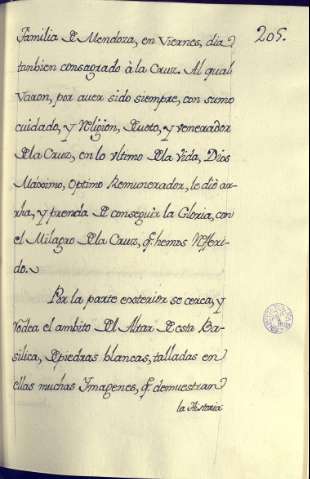 205.
Familia de Mendoza, en Viernes, dia
tanbien consagrado à la Cruz. Al qual
Varon, por auer sido siempre, con sumo
cuidado, y Religion, deuoto, y venerador
de la Cruz, en lo vltimo de la vida, Dios
Maximo, Optimo Remunerador, le dió ar-
rha, y prenda de conseguir la Gloria, con
el Milagro de la Cruz, q̃ hemos Referi-
do.
Por la parte exterior se cerca, y
Rodea el ambito del Altar de esta Ba-
silica, de piedras blancas, talladas en
ellas muchas Imagenes, q̃ demuestran
la Historia